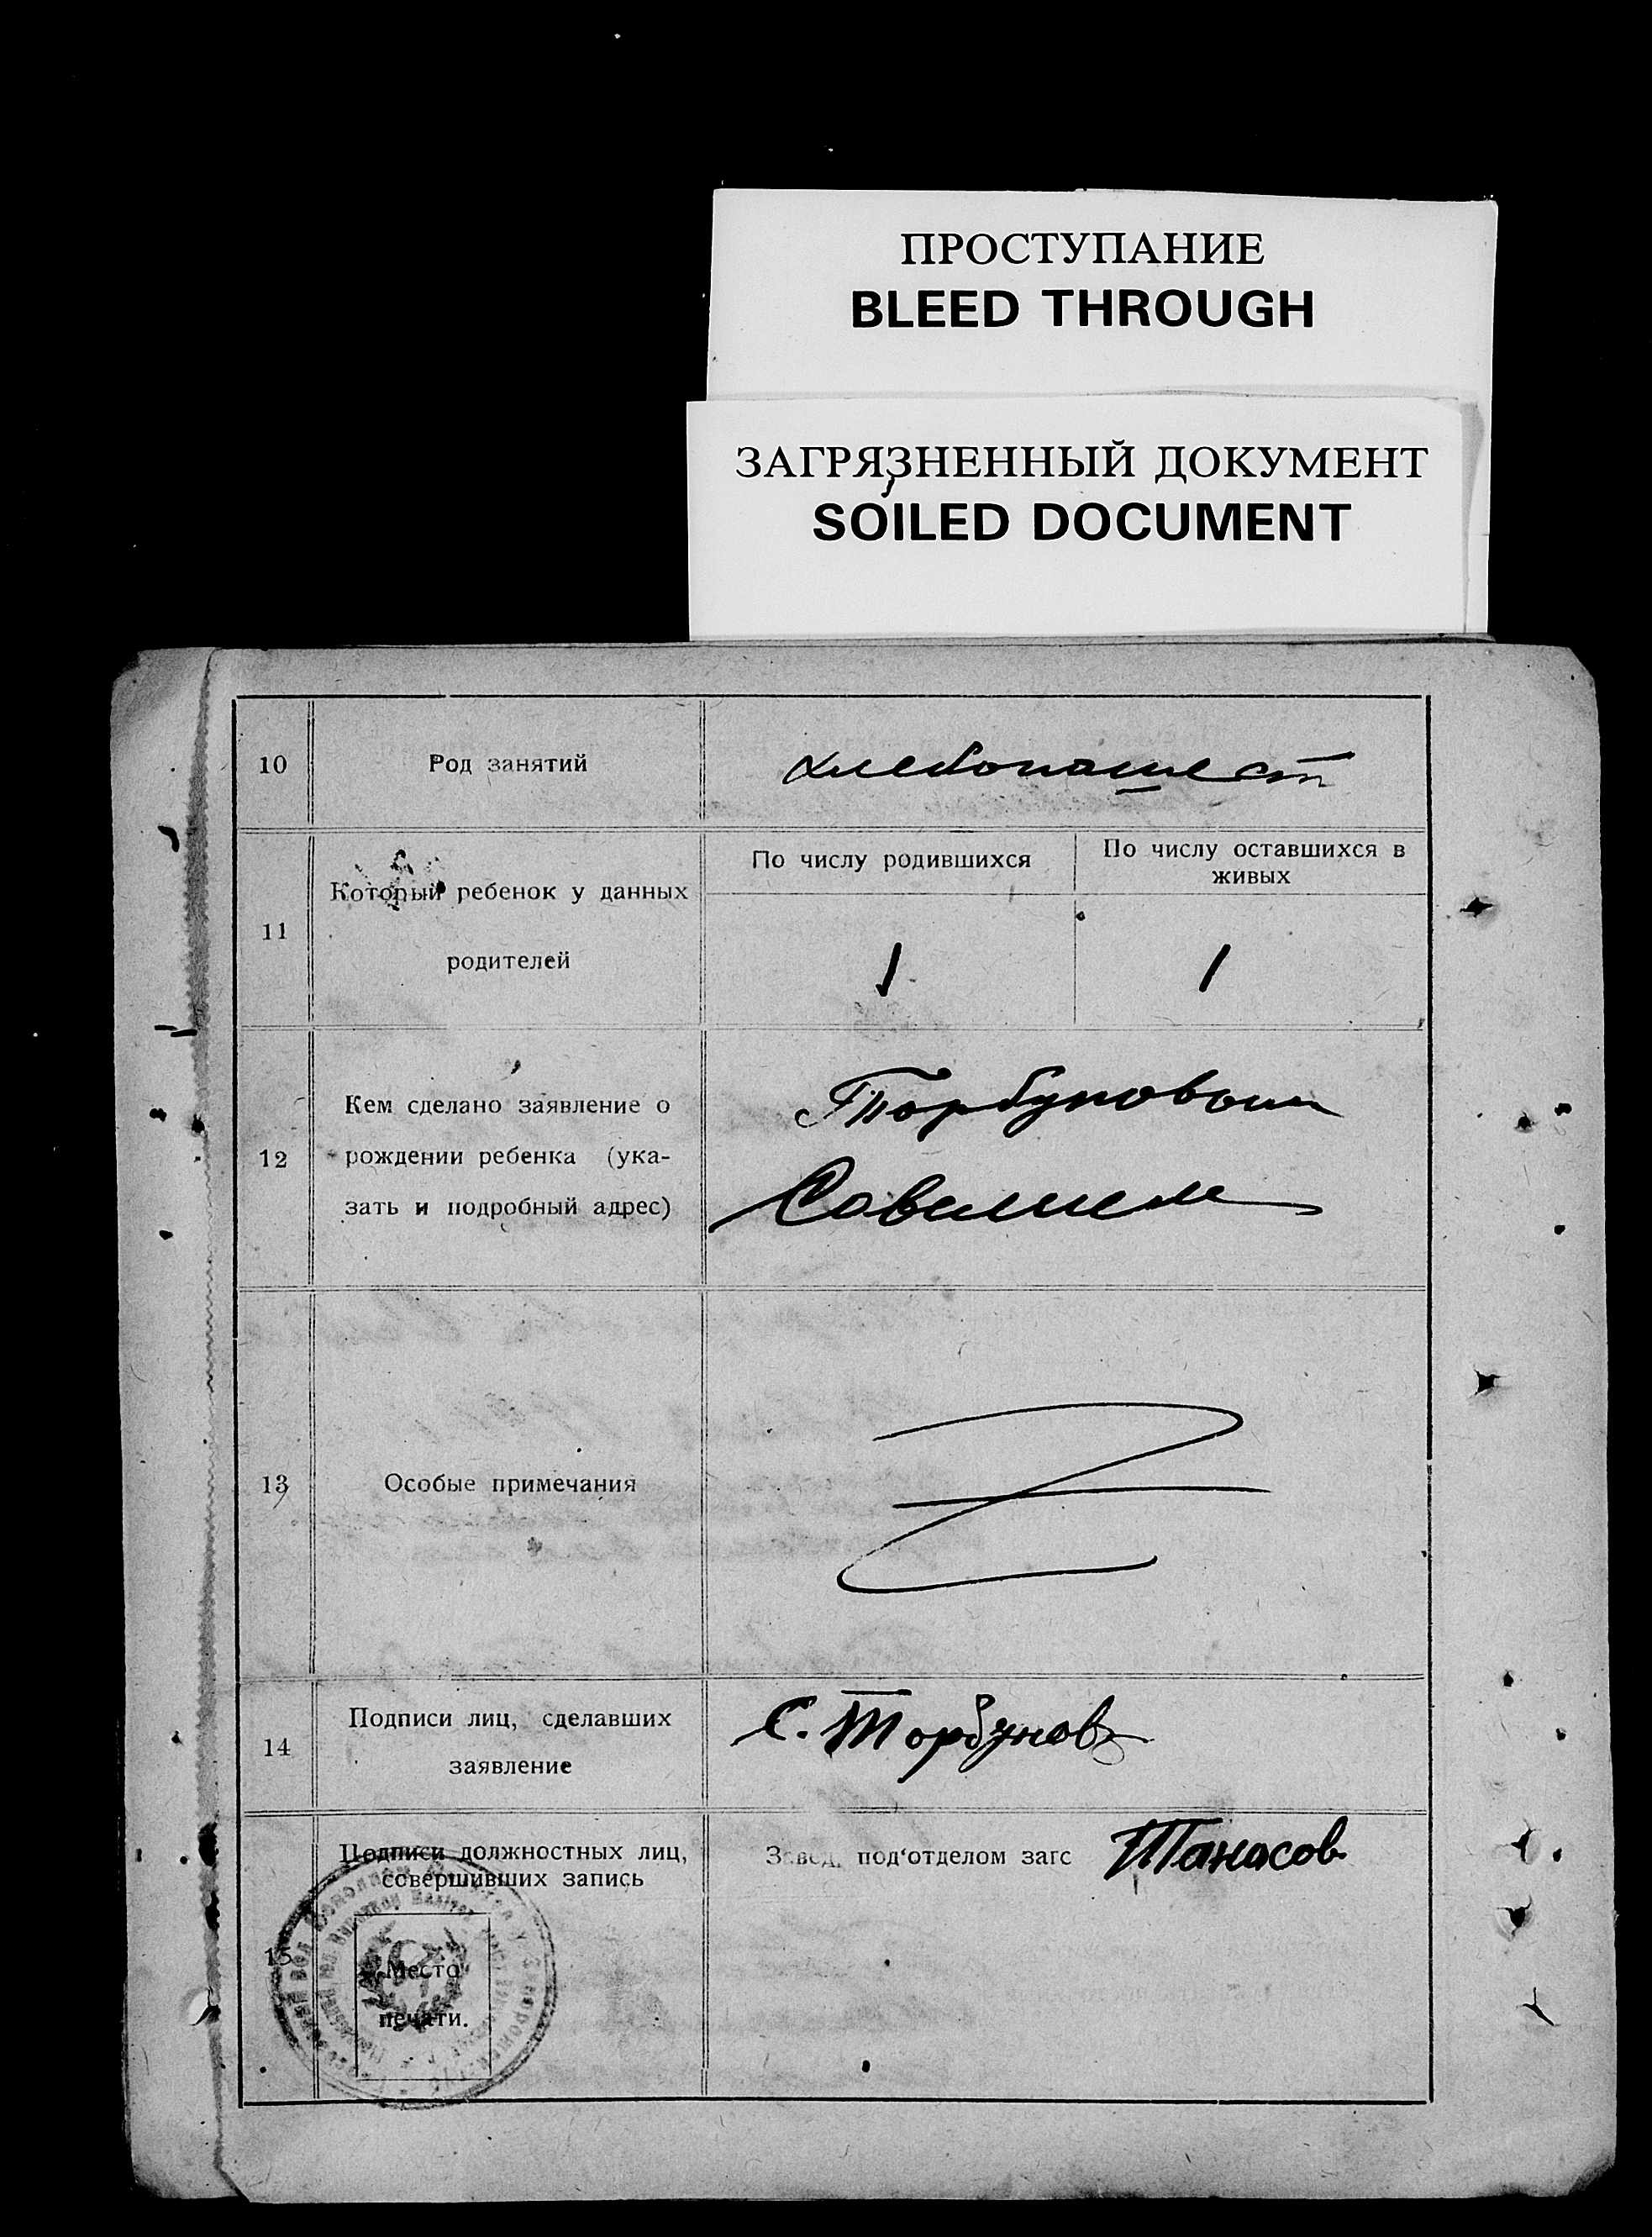 ПРОСТУПАНИЕ
BLEED THROUGH
ЗАГРЯЗНЕННЫЙ ДОКУМЕНТ
SOILED DOCUMENT
10 Род занятий хлебопашест
11 Который ребенок у данных
родителей
По числу родившихся
По числу оставшихся в
живых
1 1
12 Кем сделано заявление о
рождении ребенка (ука-
зать и подробный адрес)
Торбуновым
Савелием
13 Особые примечания
14 Подписи лиц, сделавших
заявление
С. Торбунов
15 Подписи должностных лиц,
совершивших запись
Место
печати.
Завед. под'отделом загс Танасов